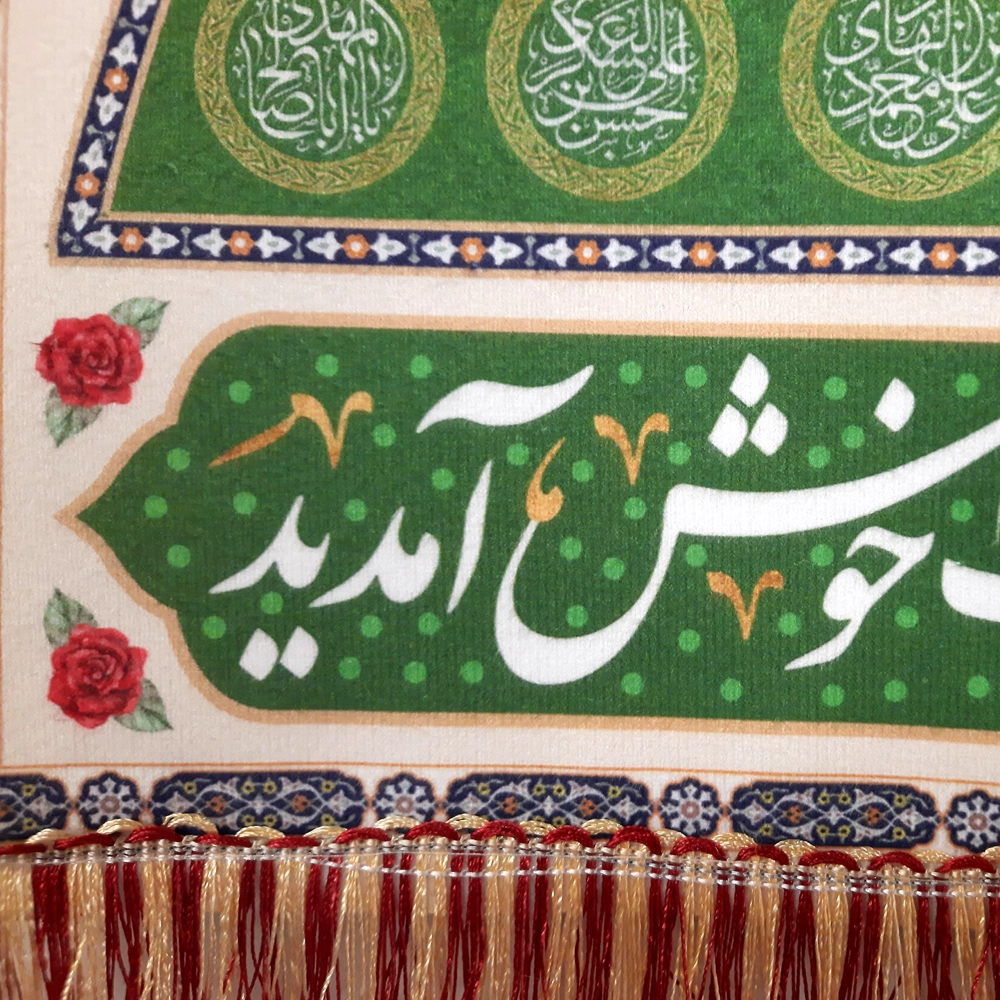 علی النقی بن محمد
حسن بن علی العسکری
یا اباصالح المهدی
خوش آمدید